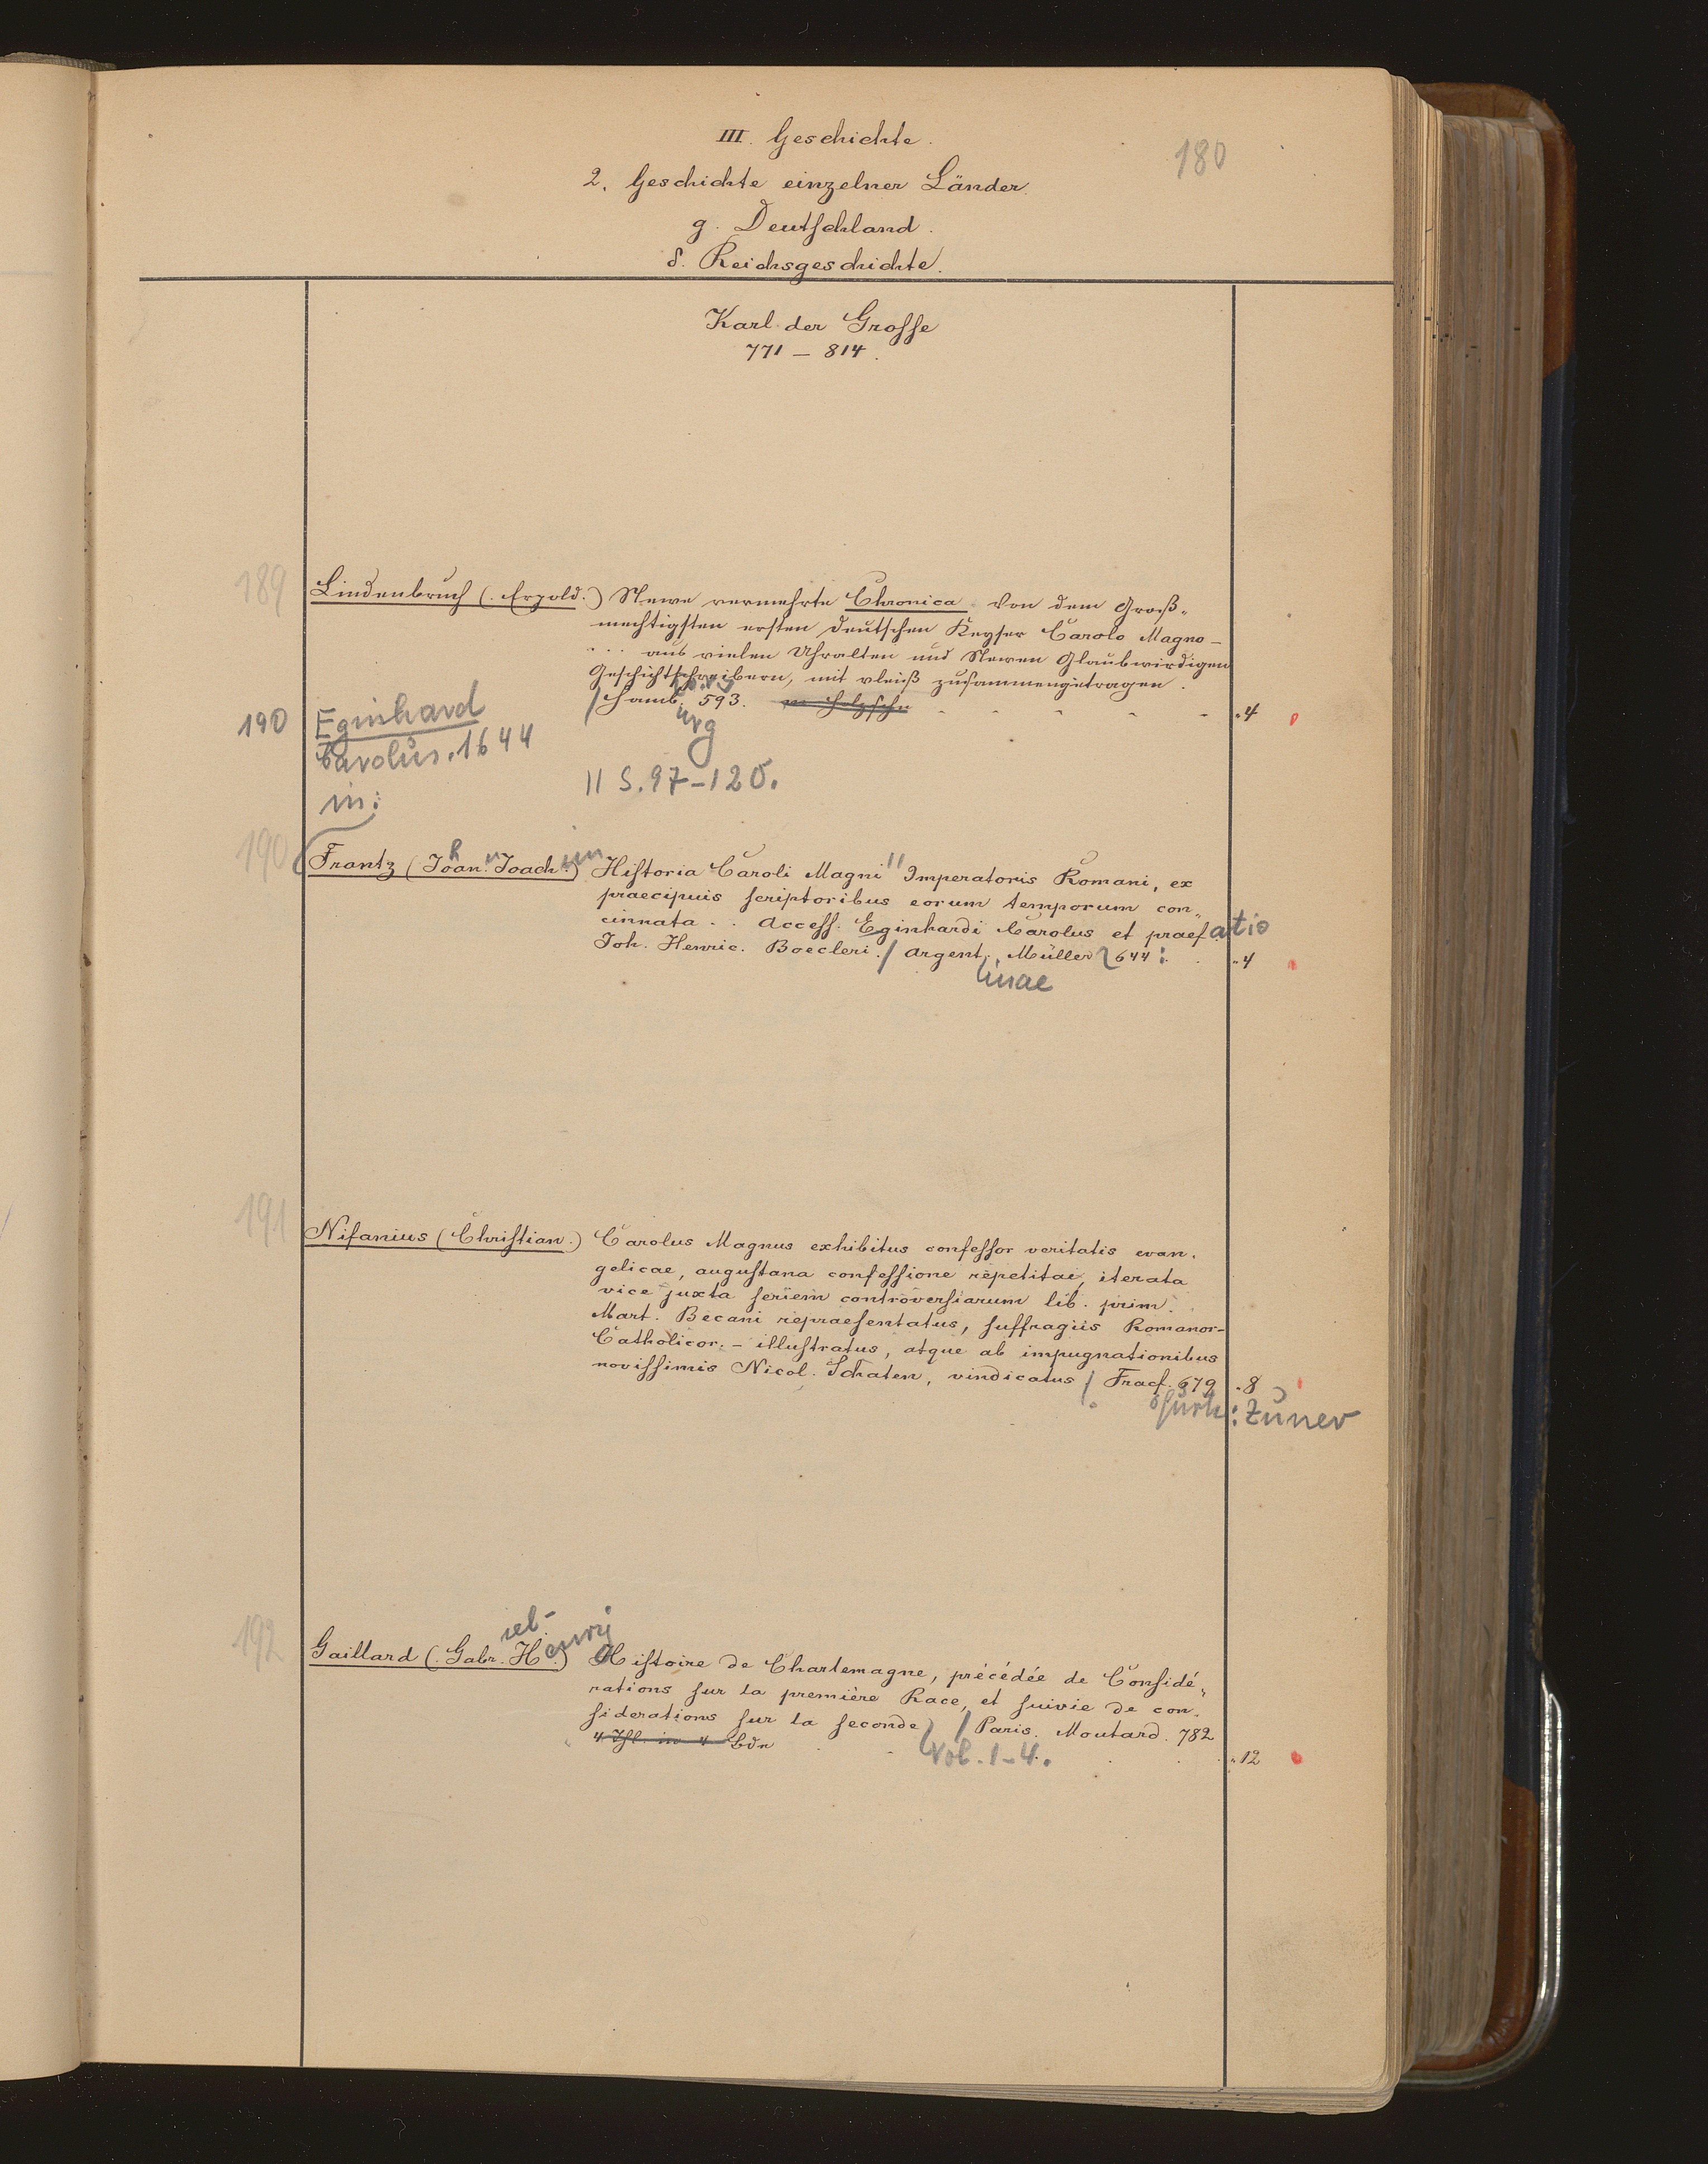 180
III. Geschichte.
2. Geschichte einzelner Länder.
g. Deutschland.
δ. Reichsgeschichte.
Karl der Grosse
771 – 814.
189
Lindenbruch (Erpold.) Newe vermehrte Chronica Von dem Groß-
mechtigsten ersten Deutschen Keyser Carolo Magno –
... aus vielen Uhralten und Newen Glaubwirdigen
Geschichtschreibern, mit vleiß zusammengetragen.
/ Hamb. 593. m Holzschn „4
urg
190 Eginhard
Carolus. 1644
in:
|| S. 97–120.
190
Frantz (Johan. Joachim) Historia Caroli Magni || Imperatoris Romani, ex
praecipuis scriptoribus eorum temporum con„
cinnata . . Access. Eginhardi Carolus et praefatio
Joh. Henric. Boecleri. / Argent. Müller 644 : „4
tinae
191
Nifanius (Christian.) Carolus Magnus exhibitus confessor veritatis evan.
gelicae, augustana confessione repetitae, iterata
vice juxta seriem controversiarum lib. prim.
Mart. Becani repraesentatus, suffragiis Romanor-
Catholicor. – illustratus, atque ab impugnationibus
novissimis Nicol. Schaten, vindicatus / Fracf. 679 „8
furti: Zuner
192
Gaillard (Gabr. H.) Histoire de Charlemagne, précédée de Considé„
riel- enri
rations sur la première Race, et suivie de con„
siderations sur la seconde / Paris. Moutard. 782
4 Thl. in 4 Bdn
Vol. 1–4. „12